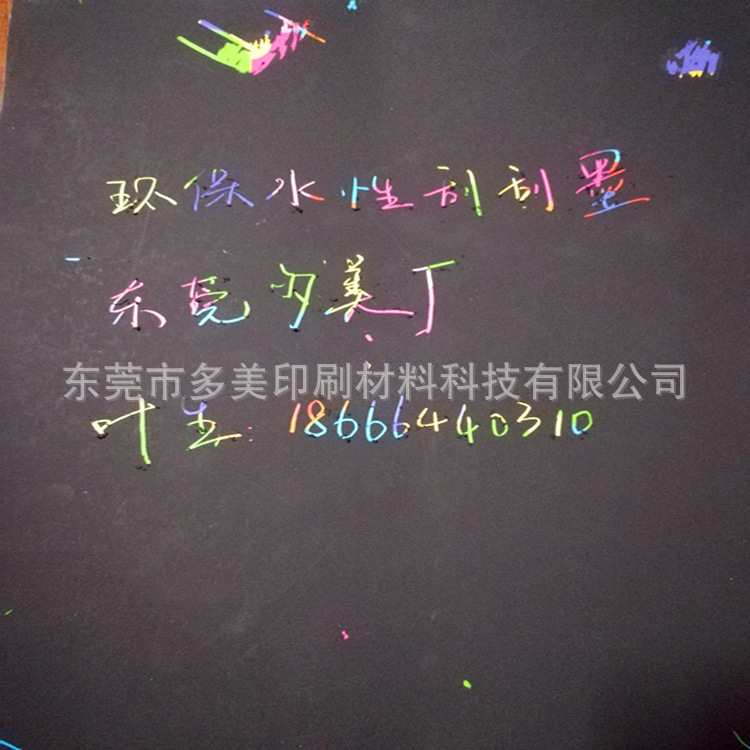 环保水性刮刮墨
东莞多美厂
东莞市多美印刷材料科技有限公司
叶生:18666440310